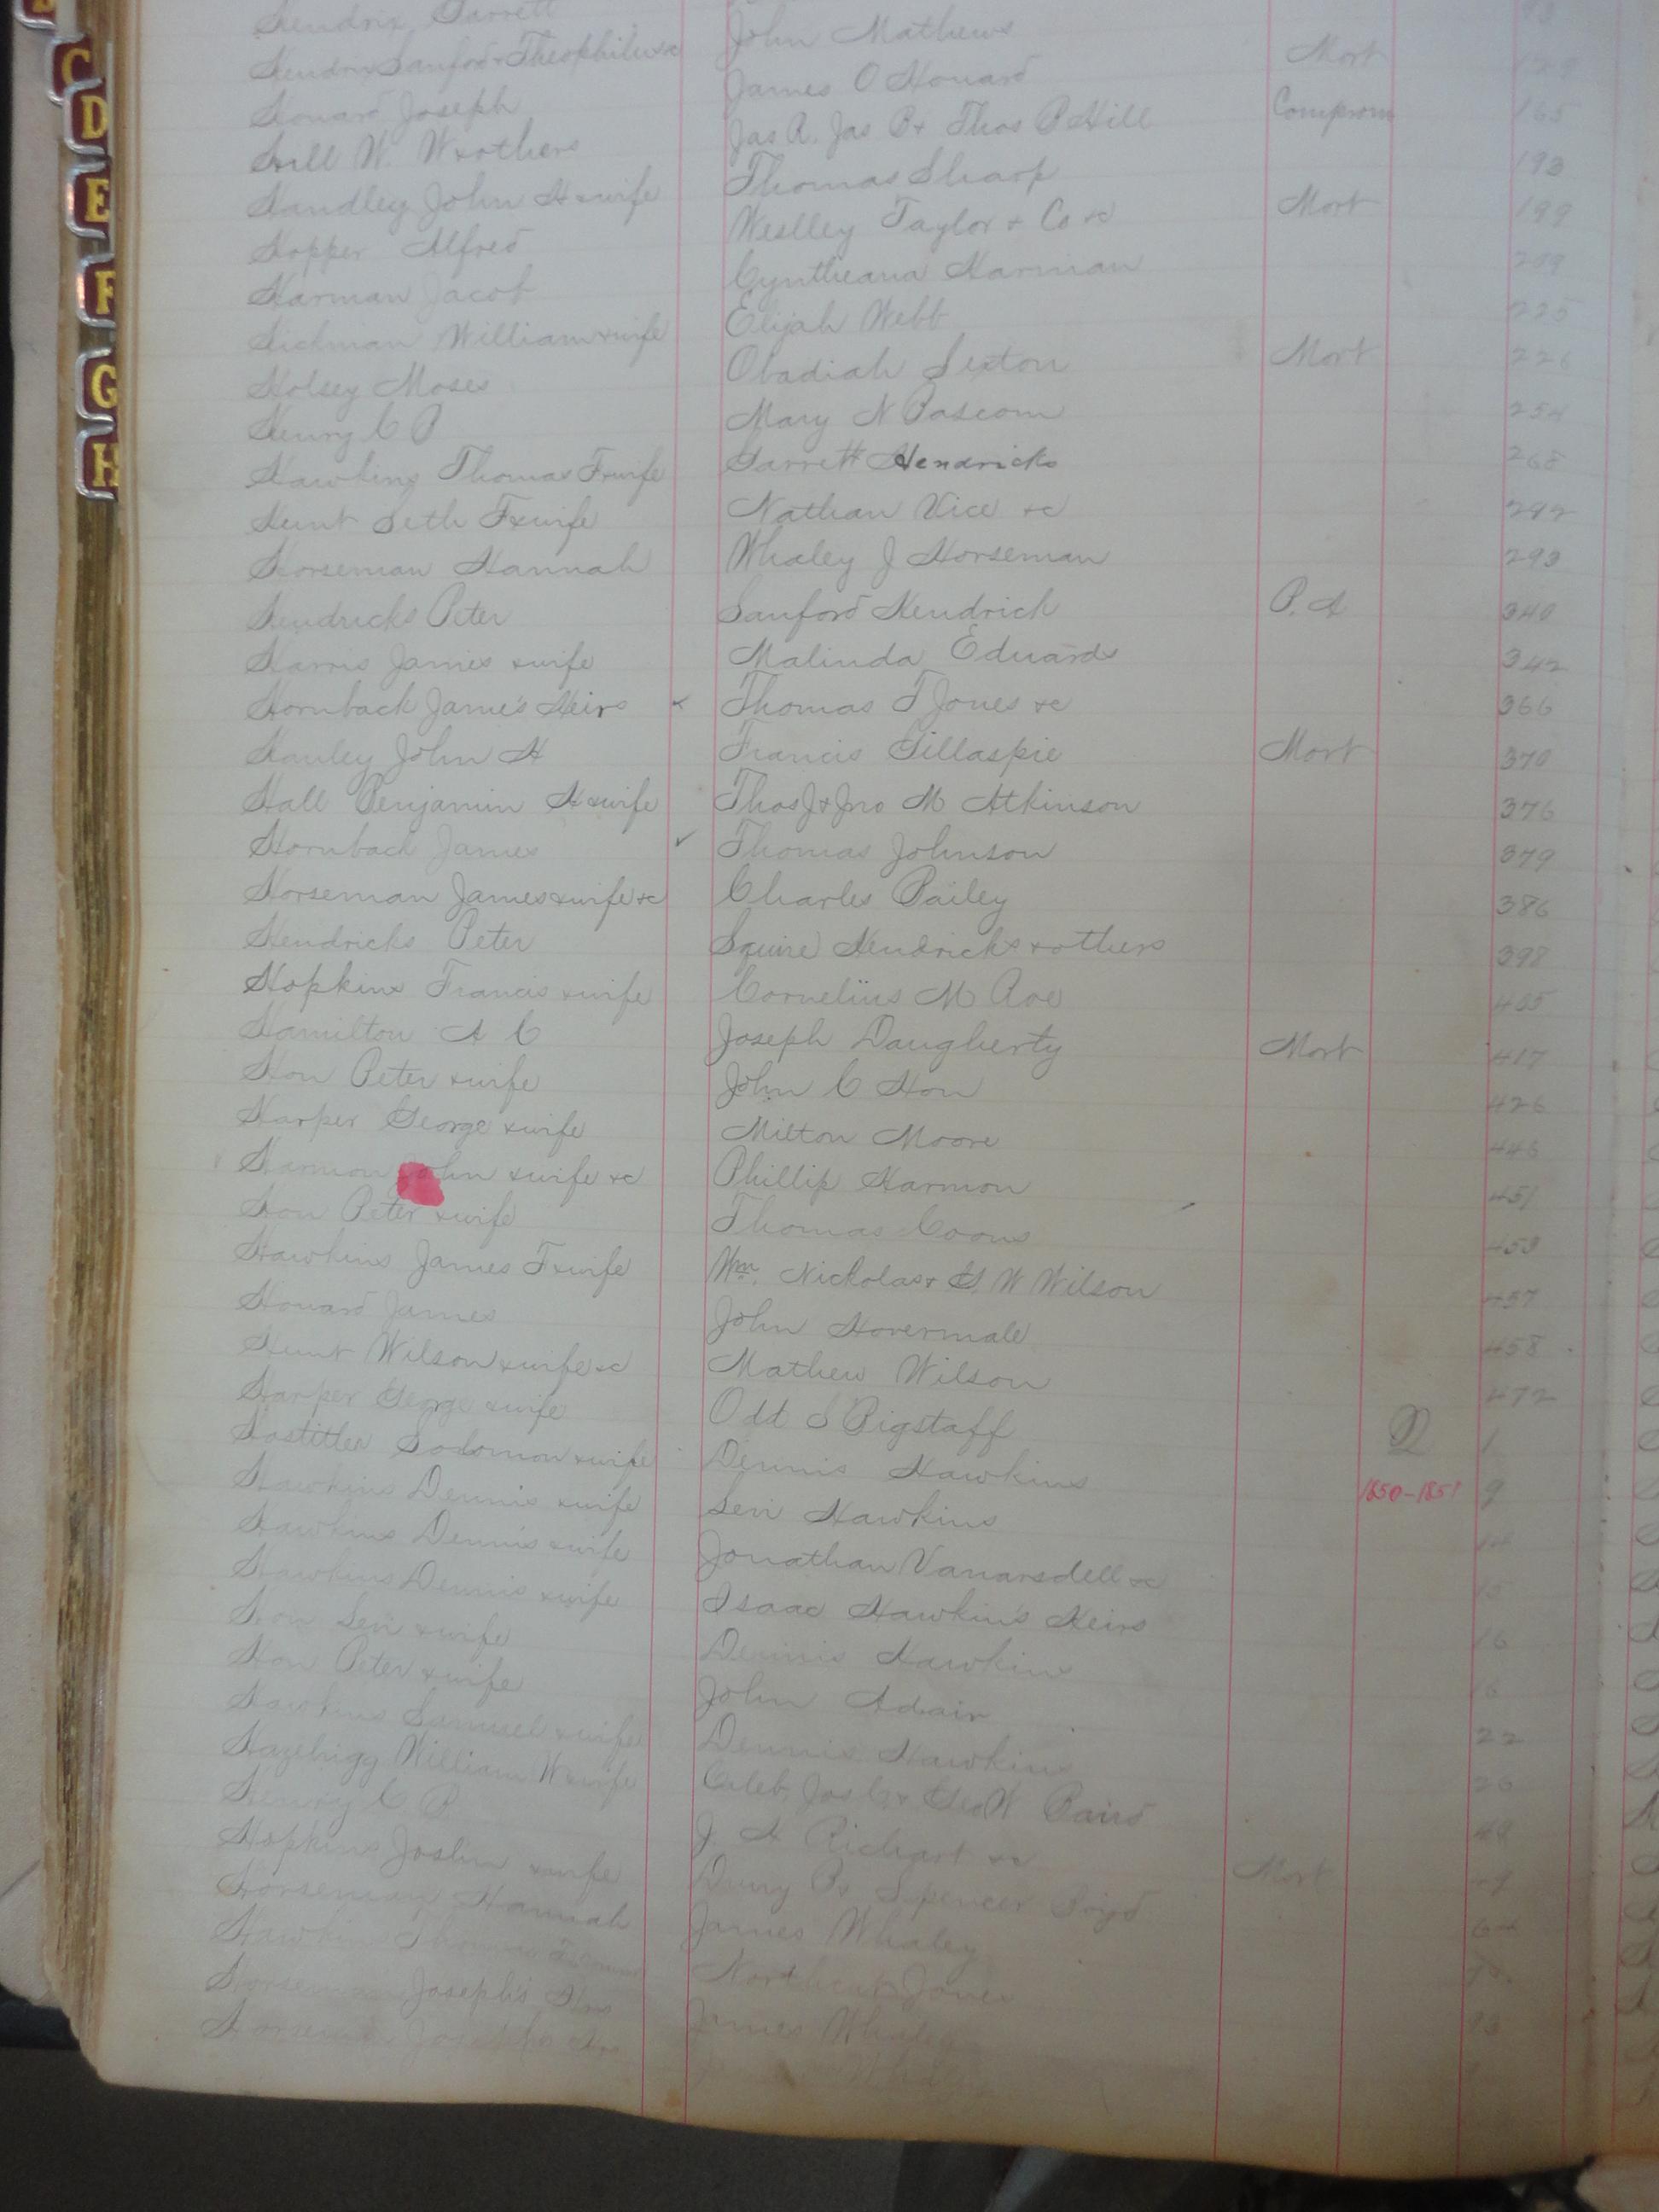 C
D
E
F
G
H
Hendrix Garrett John Mathews
Hendrix Sanford + Theophilus &c James O Howard Mort
Howard Joseph Jas R. Jas B + Thos P Hill Comprom 165
Hill W. W & others Thomas Sharp 193
Handley John H & wife Weslley Taylor + Co &c Mort 199
Hopper Alfred Cyntheana Harman 209
Harman Jacob Elijah Webb 225
Hickman William & wife Obadiah Sexton Mort 226
Holsey Moses Mary N Bascom 254
Henry C B Garrett Hendricks 268
Hawkins Thomas F & wife Nathan Vice &c 292
Hunt Seth F & wife Whaley J Horseman 293
Horseman Hannah Sanford Hendrick P. A 340
Hendricks Peter Malinda Edwards 342
Harris James & wife Thomas T Jones &c 366
Hornback James Heirs Francis Gillaspie Mort 370
Hanley John H Thos J & Jno M Atkinson 376
Hall Benjamin H & wife Thomas Johnson 379
Hornback James Charles Bailey 386
Horseman James & wife &c Squire Hendricks & others 398
Hendricks Peter Cornelius M Roe 405
Hopkins Francis & wife Joseph Daugherty Mort 417
Hamilton A C John C Hon 426
Hon Peter & wife Milton Moore 446
Harper George & wife Phillip Harmon 451
Harmon John & wife &c Thomas Coons 453
Hon Peter & wife Wm. Nickolas + G. W Wilson 457
Hawkins James F & wife John Hovermale 458
Howard James Mathew Wilson 472
Hunt Wilson & wife &c Odd S Bigstaff 1
Harper George & wife Dennis Hawkins 1850-1851 9
Hostitler Solomon & wife Levi Hawkins 14
Hawkins Dennis & wife Jonathan Vanarsdell &c 15
Hawkins Dennis & wife Isaac Hawkins Heirs 16
Hawkins Dennis & wife Dennis Hawkins 16
Hon Levi & wife John Adair 22
Hon Peter & wife Dennis Hawkins 26
Hawkins Samuel & wife Caleb, Jos C + Geo W Baird
Hazelrigg William W & wife J. A Richart &c Mort
Henry C B Spencer Boyd
Hopkins Joslin & wife James Whaley
Horseman Hannah Jones
Hawkins Thomas James Whaley
Horseman Joseph's Hrs